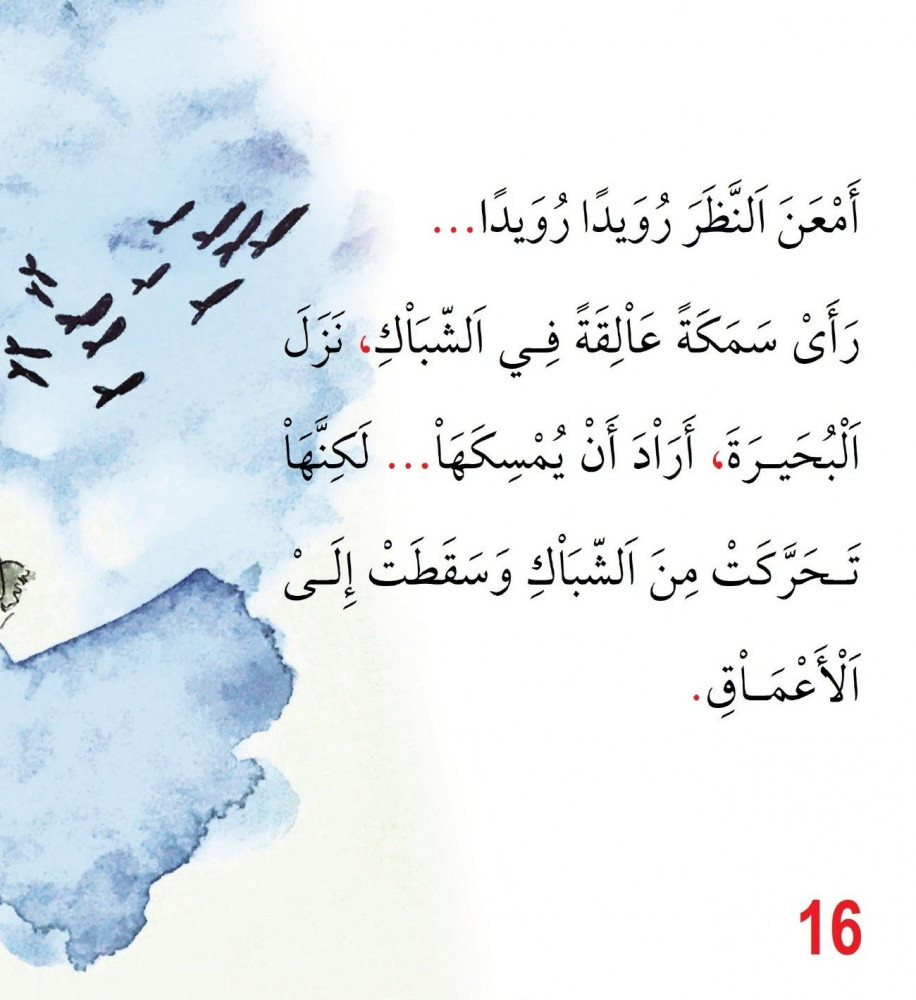 أَمْعَنَ اَلنَّظَرَ رُوَيدًا رُوَيدًا...
رَأَىْ سَمَكَةً عَاْلِقَةً فِـي اَلشّبَاْكِ، نَزَلَ
اَلْبُحَيـرَةَ، أَرَاْدَ أَنْ يُمْسِكَهَاْ... لَكِنَّهَاْ
تَـحَرَّكَتْ مِنَ اَلشّبَاْكِ وَسَقَطَتْ إِلَـىْ
اَلْأَعْمَـاْقِ.
16